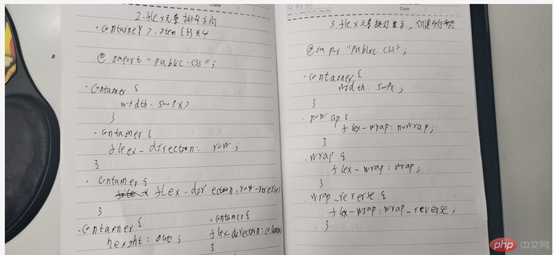 2. flex元素排列方向
· container > .item {$} *4
@import "public.css";
· container {
width: 500px;
}
· container {
flex-direction: row;
}
· container {
flex-direction: row-
}
· container {
height:
}
· container {
flex-direction: column
}
3. flex元素
@import "public.css";
· container {
width: 500px;
}
· nowrap {
flex-wrap: nowrap;
}
· wrap {
flex-wrap: wrap;
}
wrap_reverse {
flex-wrap: wrap_reverse;
}
php 中文网